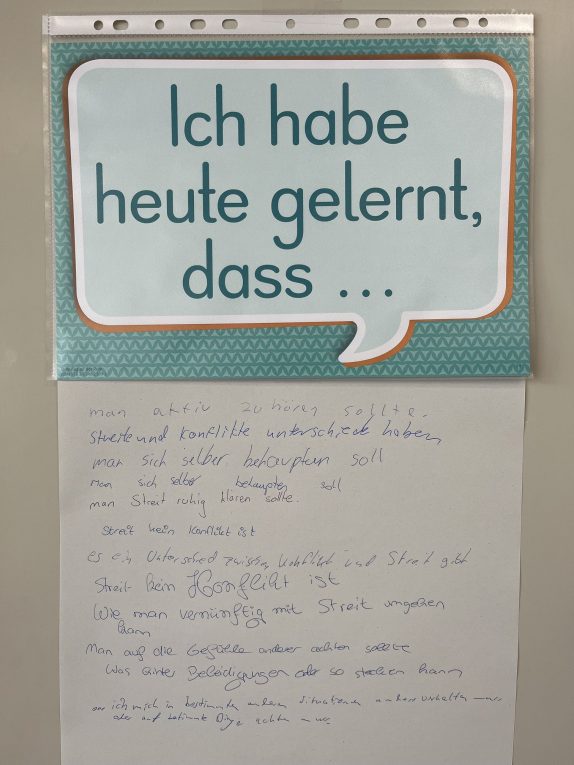 Ich habe
heute gelernt,
dass ...
man aktiv zuhören sollte.
Streite und Konflikte unterschiede haben
man sich selber behaupten soll
man sich selber behaupten soll
man Streit ruhig klären sollte.
Streit kein Konflikt ist
es ein Unterschied zwischen Konflikt und Streit gibt
Streit kein Konflikt ist
Wie man vernünftig mit Streit umgehen
kann
Man auf die Gefühle anderer achten sollte
Was hinter Beleidigungen oder so stecken kann
ich mich in bestimmten Situationen anders verhalten muss
oder auf bestimmte Dinge achten muss